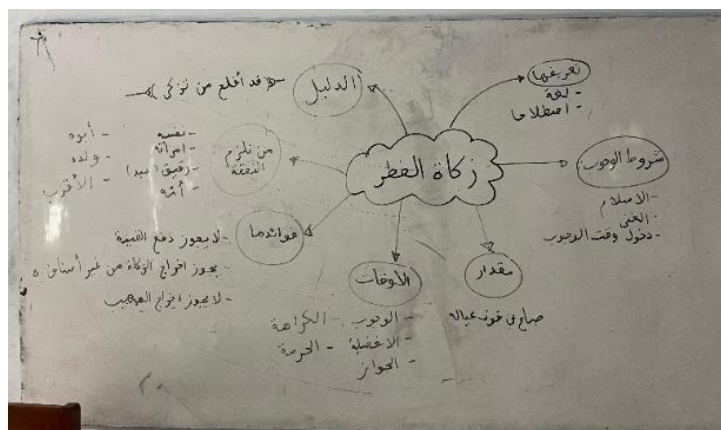 زكاة الفطر
تعريفها
- لغة
- اصطلاحا
شروط الوجوب
- الاسلام
- الغنى
- دخول وقت الوجوب
مقدار
صاع من قوت عياله
الأوقات
- الوجوب
- الافضلية
- الجواز
- الكراهة
- الحرمة
فوائدها
- لا يجوز دفع القيمة
- يجوز اخراج الزكاة من غير
- لا يجوز اخراج المعيب
من تلزم النفقة
- نفسه
- امرأته
- رقيق (عبد)
- أمه
- أبوه
- ولده
- الأقرب
الدليل
قد أفلح من تزكى